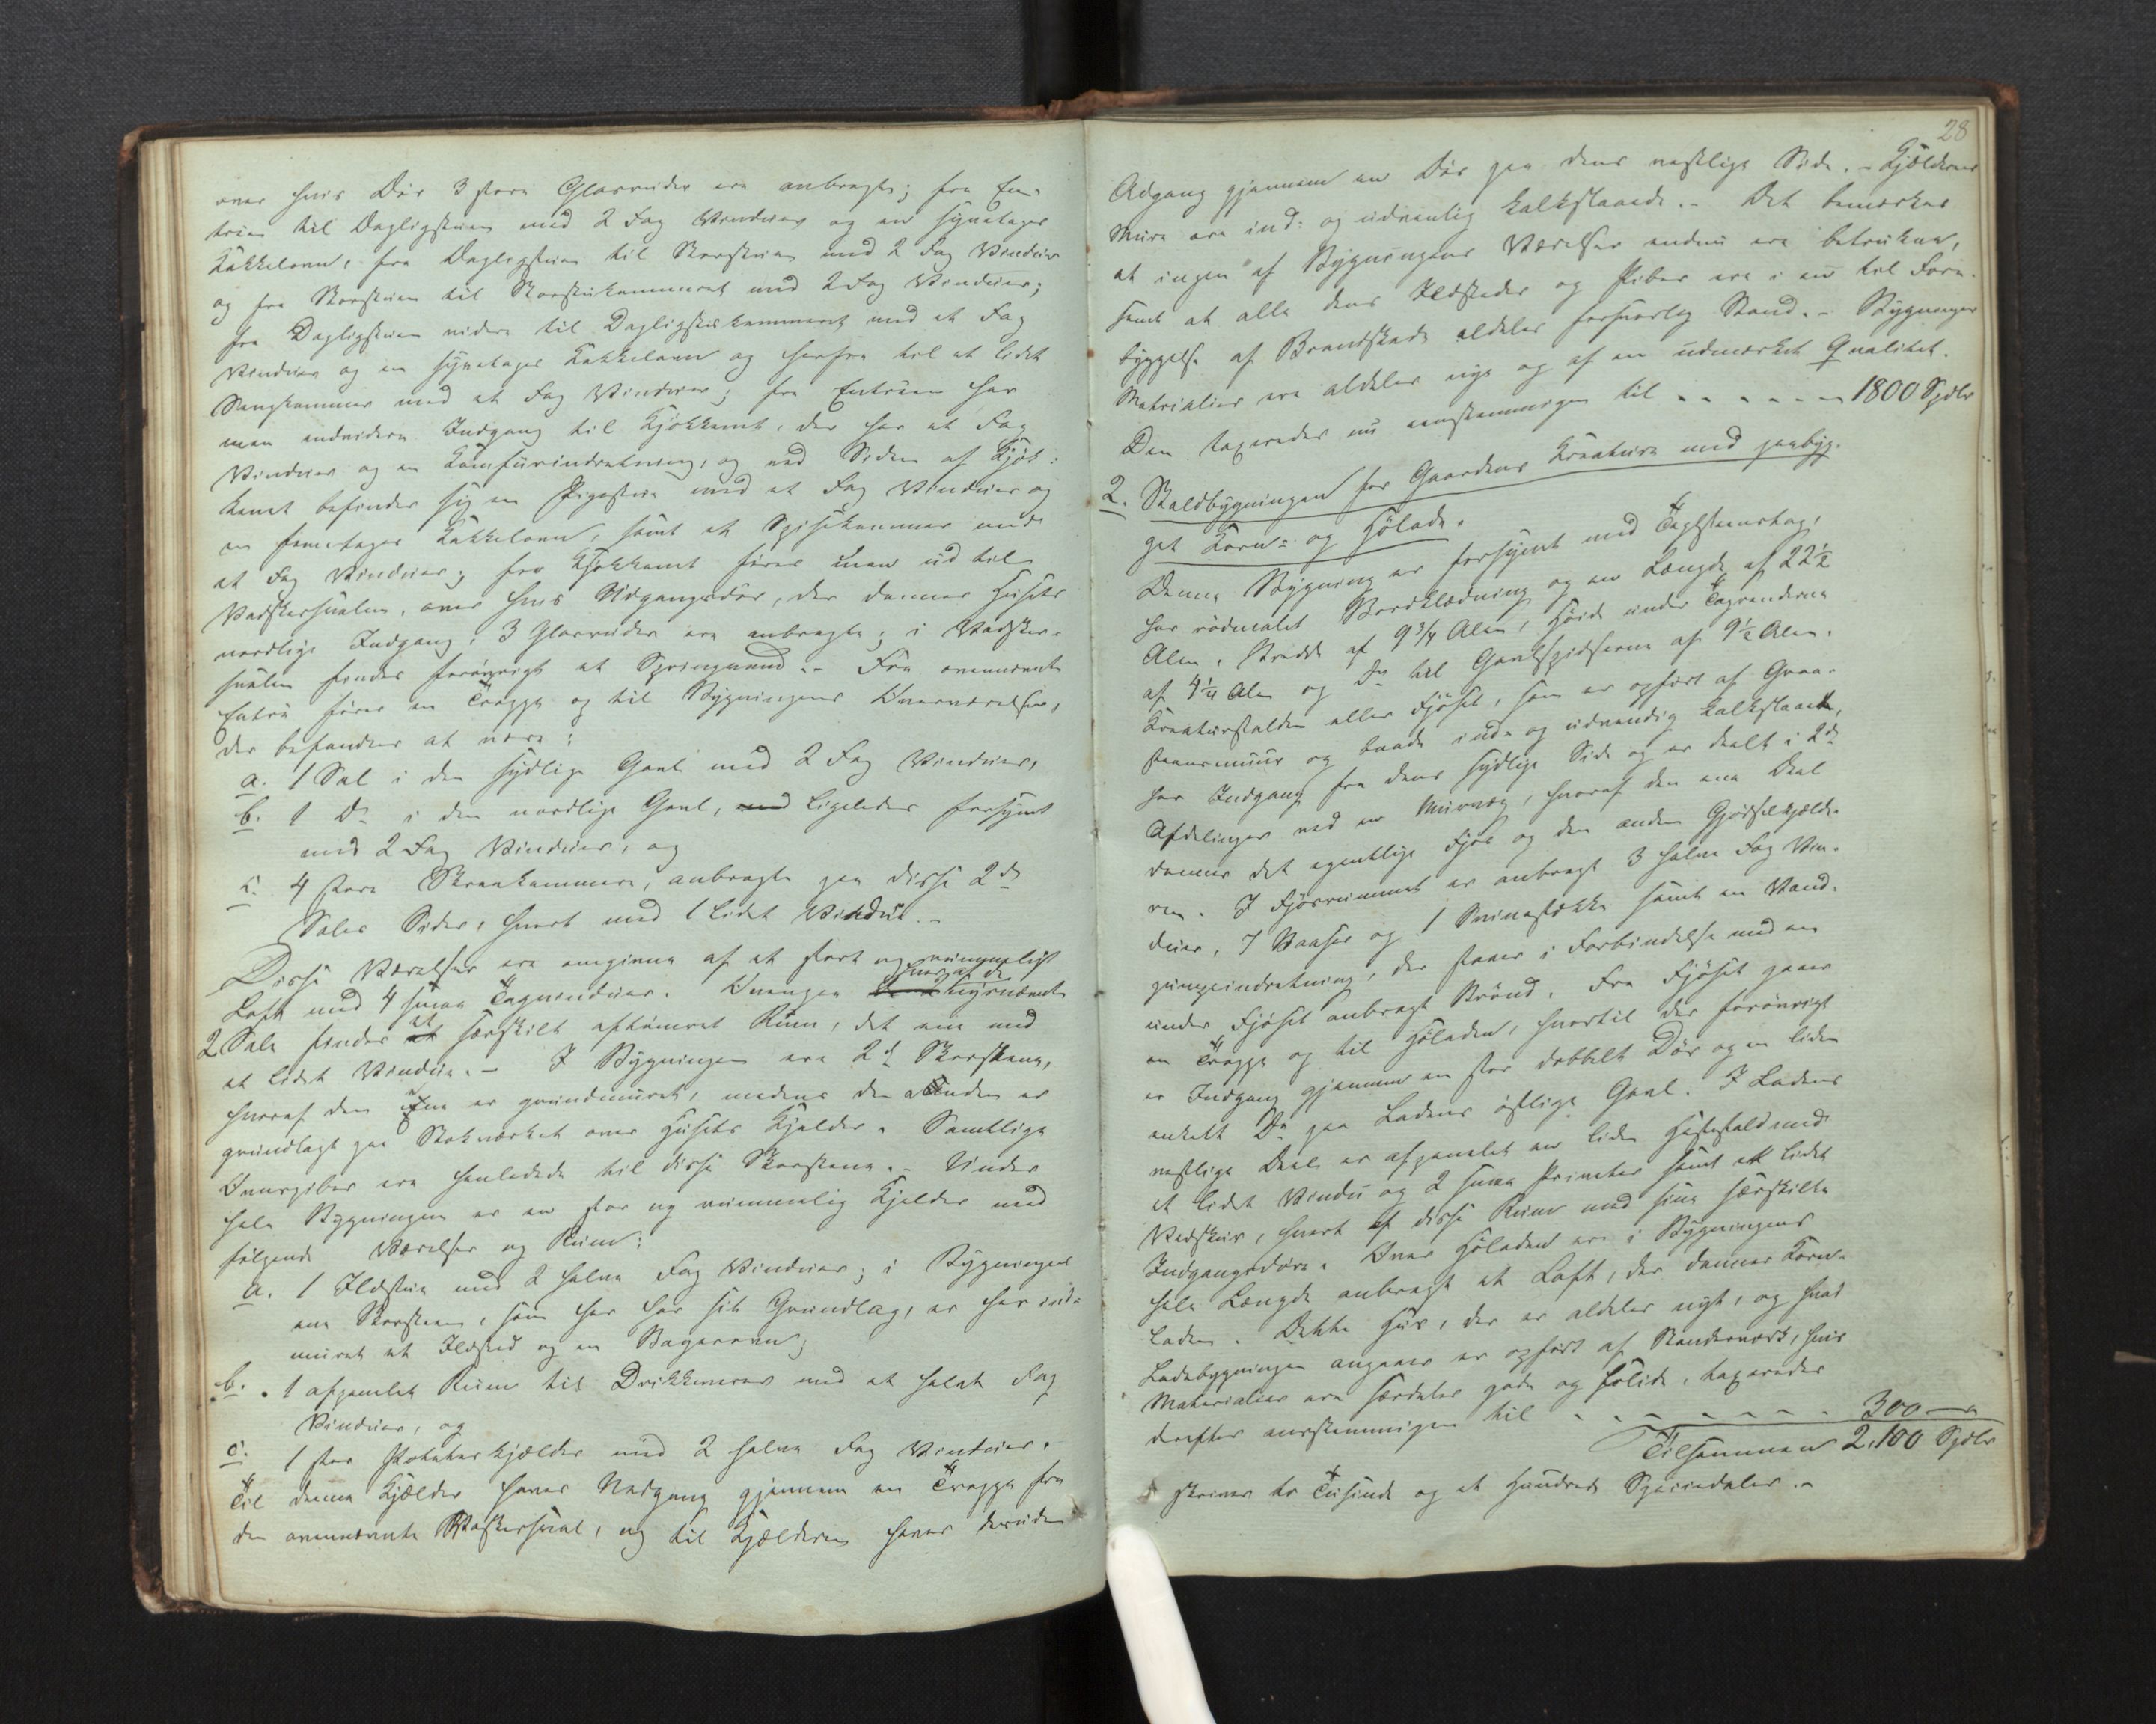 over hvis Dør 3 store Glasruder ere anbragte; fra En-
treen til Dagligstuen med 2 Fag Vinduer og en tyeetages
Kakkelovn, fra Dagligstuen til Storstuen med 2 Fag Vinduer
og fra Storstuen til Storstukammeret med 2 Fag Vinduer;
fra Dagligstuen videre til Dagligstukammeret med et Fag
Vinduer og en tyeetages Kakkelovn og herfra til et lidet
Sengkammer med et Fag Vinduer; fra Entreen har
man endvidere Indgang til Kjøkkenet, der har et Fag
Vinduer og en Komfurindretning, og ved Siden af Kjøk-
kenet befinder sig en Pigestue med et Fag Vinduer og
en Kakkelovn, samt et Spisekammer med
et Fag Vinduer; fra Kjøkkenet føres man ud til
Vadskersvalen, over hvis Udgangsdør, der danner Husets
nordlige Indgang, 3 Glasruder ere anbragte; i Vadsker-
svalen findes forøvrigt et Springvand.- Fra ovennævnte
Entre fører en Trappe op til Bygningens Overværelser,
der befandtes at være:
a. 1 Sal i den sydlige Gavl med 2 Fag Vinduer,
b. 1 Do i den nordlige Gavl, med Ligeledes forsynet
med 2 Fag Vinduer, og
c. 4 store Skraakammere, anbragte paa disse 2de
Sales Sider, hvert med 1 lidet Vindue.-
Disse Værelser ere omgivne af et stort og rummeligt
Loft med 4 smaa Tagvinduer. Ovenpaa hver af de nysnævnte
2 Sale findes et særskilt aftømret Rum, det ene med
et lidet Vindue.- I Bygningen ere 2de Skorstene,
hvoraf den Ene er grundmuret, medens den Anden er
grundlagt paa Stokværket over Husets Kjelder. Samtlige
Ovnspiber ere henledede til disse Skorstene.- Under
hele Bygningen er en stor og rummelig Kjelder med
følgende Værelser og Rum:
a. 1 Ildstue med 2 halve Fag Vinduer; i Bygningens
ene Skorsteen, som her har sit Grundlag, er her ind-
muret et Ildsted og en Bagerovn;
b. 1 afpanelet Rum til Drikkevarer med et halvt Fag
Vinduer, og
c. 1 stor Potetes kjælder med 2 halve Fag Vinduer.
Til denne Kjælder haves Nedgang gjennem en Trappe fra
den ovennævnte Vaskersval, og til Kjælderen haves desuden
28
Adgang gjennem en Dør paa dens vestlige Side. - Kjælderens
Mure ere ind- og udvendig kalkslaaede.- Det bemærkes
at ingen af Bygningens Værelser endnu ere betrukne,
samt at alle dens Ildsteder og Piber ere i en til Fore-
byggelse af Brandskade aldeles forsvarlig Stand.- Bygningens
Materialier ere aldeles nye og af en udmærket Qvalitet.
Den taxeredes nu eenstemmigen til - - - - - - - 1800 Spdlr
2. Staldbygningen for Gaardens Kreature med paabyg-
get Korn- og Hölade.
Denne Bygning er forsynet med Taglsteenstag,
har rödmalet Bordklædning og en Længde af 22½
Alen, Bredde af 9¾ Alen, Høide under Tagrenderne
af 4¼ Alen og Do til Gavlspidserne af 9½ Alen.
Kreaturstalden eller Fjöset, som er opført af Graa-
steensmuur og baade ind- og udvendig kalkslaaet,
har Indgang fra dens sydlige Side og er deelt i 2de
Afdelinger ved en Murvæg, hvoraf den ene Deel
danner det egentlige Fjös og den anden Gjødselkjælde-
ren. I Fjösrummet er anbragt 3 halve Fag Vin-
duer, 7 Baaser og 1 Svinestikke samt en Vand-
pumpeindretning, der staaer i Forbindelse med en
under Fjöset anbragt Brönd. Fra Fjöset gaaer
en Trappe op til Höladen, hvortil der forövrigt
er Indgang gjennem en stor dobbelt Dör og en liden
enkelt Do paa Ladens östlige Gavl. I Ladens
vestlige Deel er afpanelet en liden Hestestald med
et lidet Vindu og 2 smaa Priveter samt et lidet
Vedskur, hvert af disse Rum med sine særskilte
Indgangsdöre. Over Höladen ere i Bygningens
hele Længde anbragt et Loft, der danner Korn-
laden. Dette Huus, der er aldeles nyt, og hvad
Ladebygningen angaaer er opfört af Stenderværk, hvis
Materialier ere særdeles gode og solide, taxeredes
derefter eenstemmigen til - - - - - - - 300 —
Tilsammen 2,100 Spdlr
skriver to Tusinde og et Hundrede Speciedaler.-